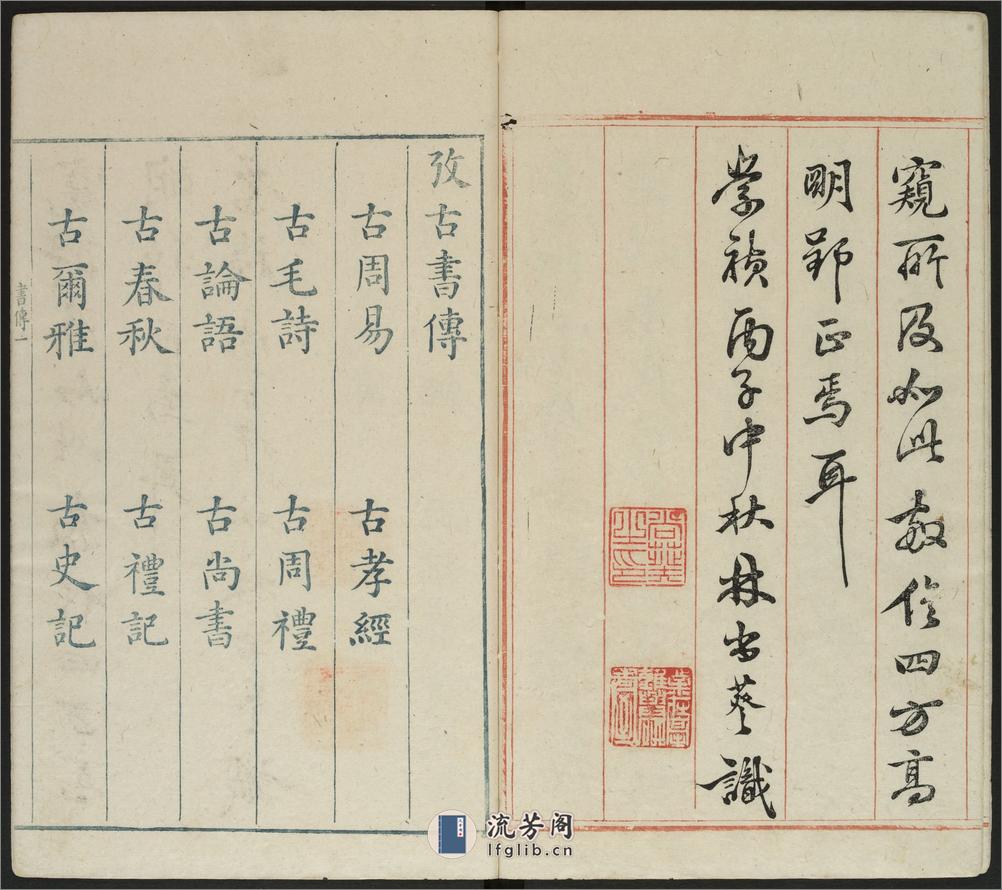 窺所及如此敢俟四方高
明郢正焉耳
崇禎丙子中秋林尚葵識
攷古書傳
古周易 古孝經
古毛詩 古周禮
古論語 古尚書
古春秋 古禮記
古爾雅 古史記
書傳一
流芳阁
lfglib.cn